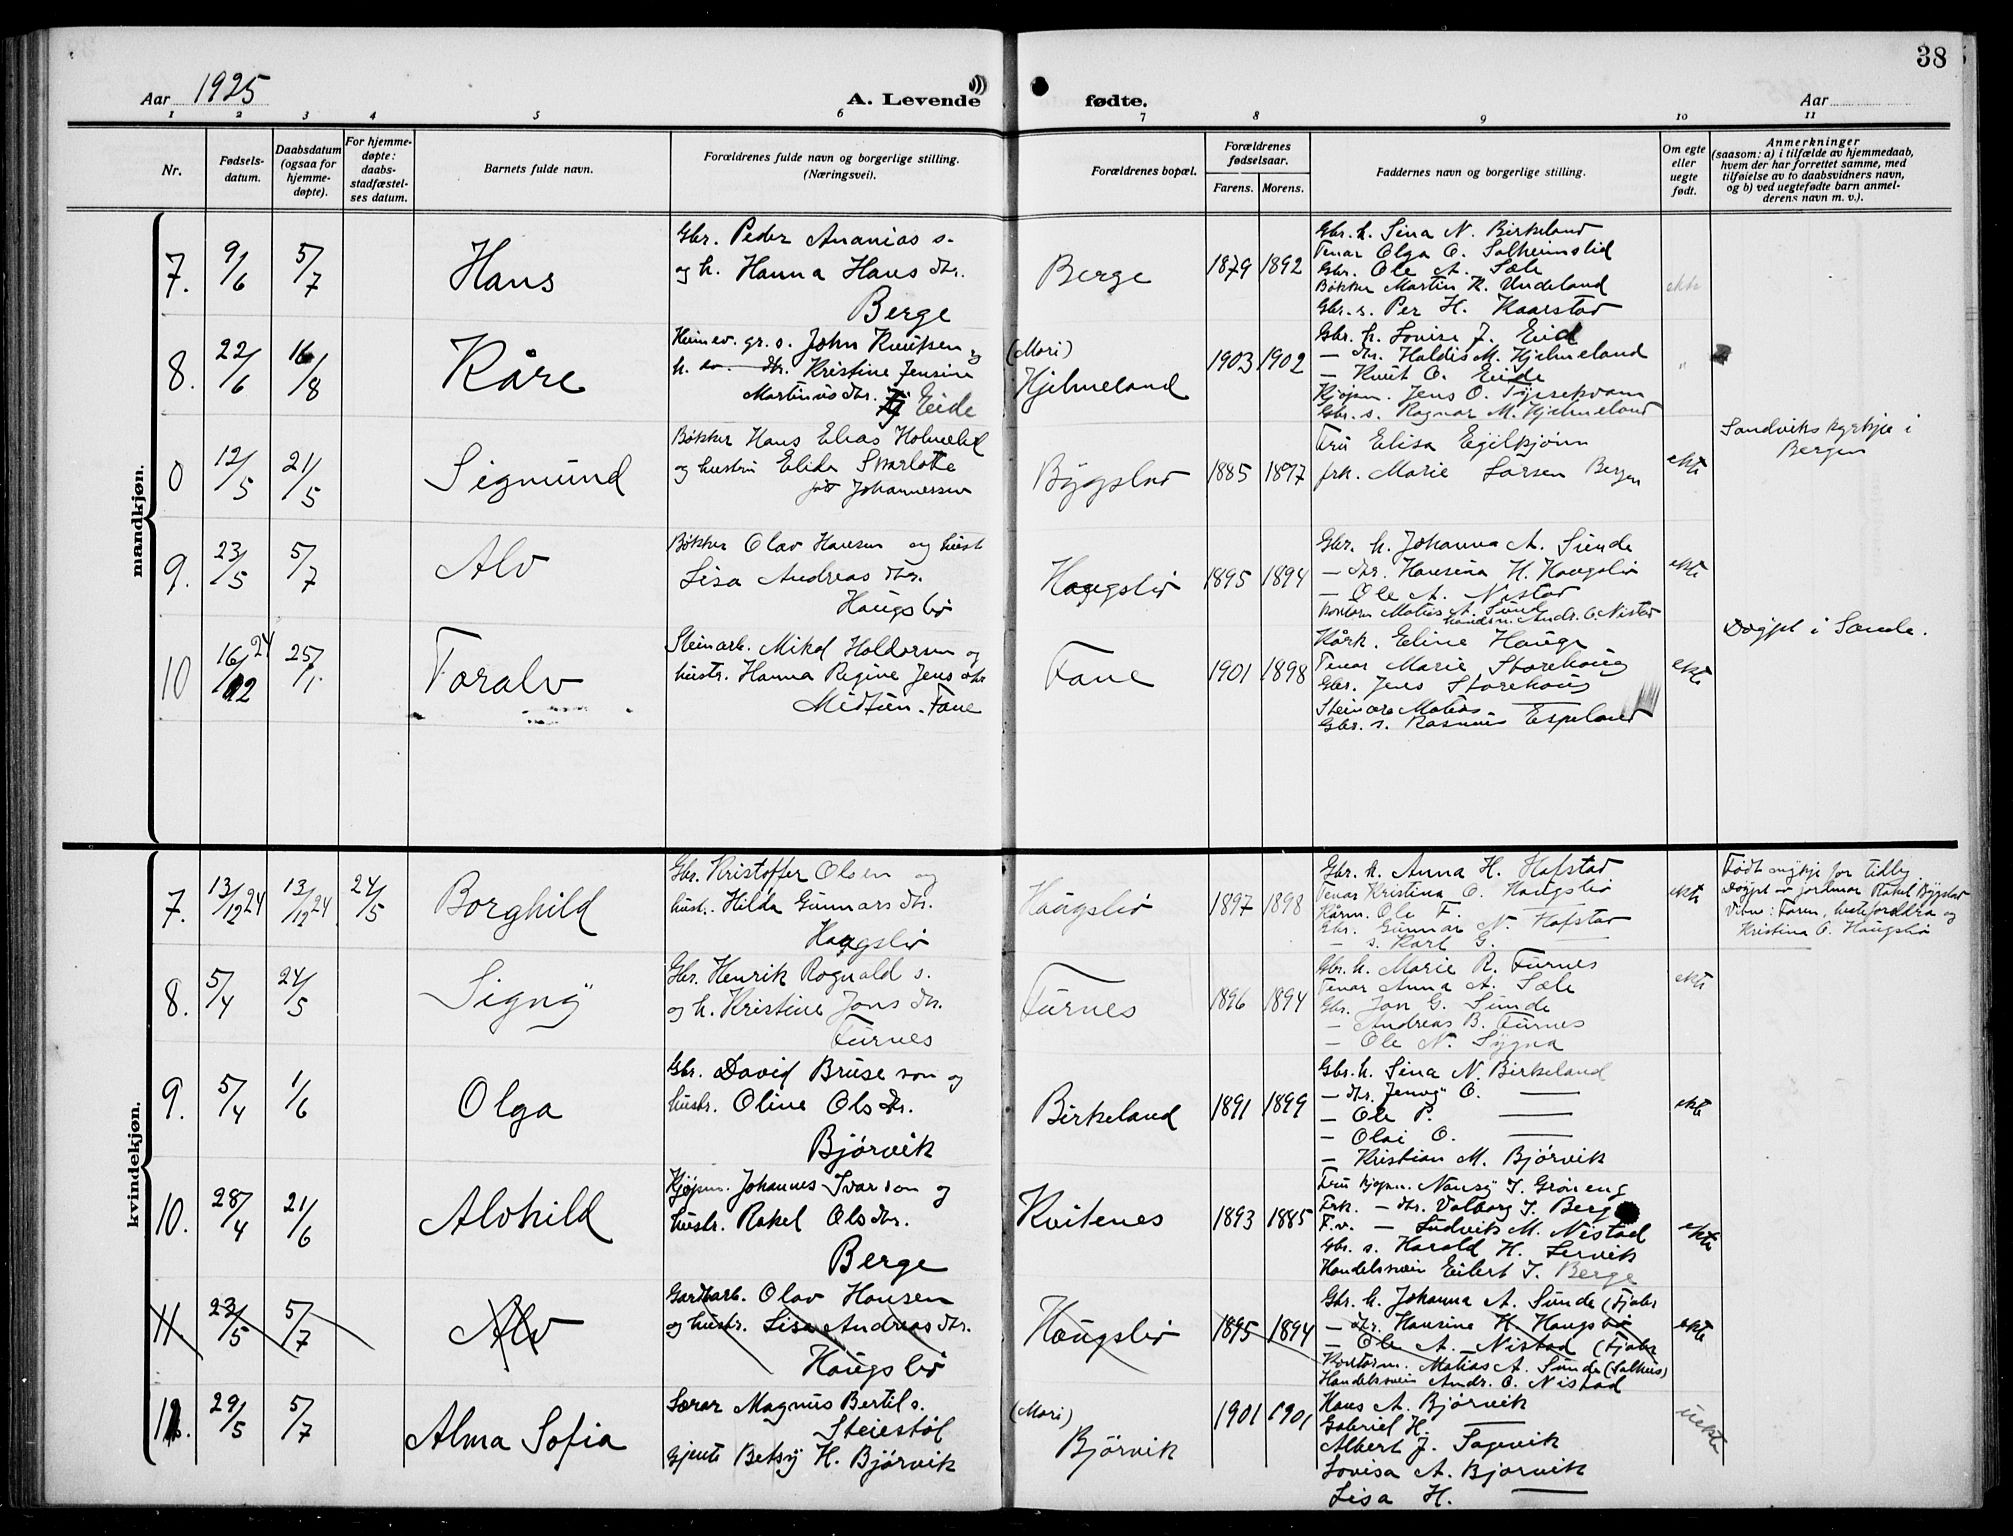 38
Aar 1925
A. Levende fødte.
Aar
1 2 3 4 5 6 7 8 9 10 11
Nr.
Fødsels-
datum.
Daabsdatum
(ogsaa for
hjemme-
døpte).
For hjemme-
døpte:
daabs-
stadfæstel-
ses datum.
Barnets fulde navn.
Forældrenes fulde navn og borgerlige stilling.
(Næringsvei).
Forældrenes bopæl.
Forældrenes
fødselsaar.
Farens. Morens.
Faddernes navn og borgerlige stilling.
Om egte
eller
uegte
født.
Anmerkninger
(saasom: a) i tilfælde av hjemmedaab,
hvem der har forrettet samme, med
tilføielse av to daabsvidners navn,
og b) ved uegtefødte barn anmel-
derens navn m. v.).
mandkjøn.
7. 9/6 5/7 Hans
Gbr. Peder Ananias s.
og h. Hanna Hans dtr.
Berge
Berge 1879 1892
Gbr. h. Sina N. Birkeland
Tenar Olga O. Solheimslid
Gbr. Ole A. Sæle
Bøkker Martin K. Undeland
Gbr. s. Per H. Kaarstad
ekte
8. 22/6 16/8 Kåre
Heimev. gr. s. John Knutsen og
h. dtr. Kristine Jensine
Martinus dtr. Eide
(Mori)
Hjelmeland 1903 1902
Gbr. h. Lovise J. Eide
— dtr. Haldis M. Hjelmeland
— Knut O. Eide
Kjøpm. Jens O. Tyssekvam
Gbr. s. Ragnar M. Hjelmeland
"
0 12/5 21/5 Sigmund
Bøkker Hans Elias Holmelid
og hustru Elida Sharlotte
født Johannessen
Bygstad 1885 1897
Fru Elisa Egilkjønn
frk. Marie Larsen Bergen
ekte
Sandviks kyrkje i
Bergen
9. 23/5 5/7 Alv
Bøkker Olav Hansen og hust.
Lisa Andreas dtr.
Haugslid
Haugslid 1895 1894
Gbr. h. Johanna A. Sunde
— dtr. Hansina H. Haugslid
— Ole A. Nistad
Kontorm. Matias A. Sund
handsm. Andr. O. Nistad
ekte
10 16/12 24 25/1 Toralv
Steinarb. Mikal Haldorsen og
hustr. Hanna Regine Jens dtr.
Midtun. Fane
Fane 1901 1898
Kårk. Eline Hauge
Tenar Marie Storehaug
Gbr. Jens Storehaug
Steinarb. Matias —
Gbr. s. Rasmus Espeland
ekte
Døypt i Sande.
kvindekjøn.
7. 13/12 24 13/12 24 24/5 Borghild
Gbr. Kristoffer Olsen og
hustr. Hilda Gunnars dtr.
Haugslid
Haugslid 1897 1898
Gbr. h. Anna H. Hafstad
Tenar Kristina O. Haugslid
Kårm. Ole F. —
Gbr. Gunnar N. Hafstad
— s. Karl G. —
ekte
Født mykje for tidleg.
Døypt av jordmor Rakel Bygstad
Vitne: Faren, besteforeldra og
Kristina O. Haugslid
8. 5/4 24/5 Signy
Gbr. Henrik Rognald s.
og h. Kristine Jons dtr.
Furnes
Furnes 1896 1894
Gbr. h. Marie R. Furnes
Tenar Anna A. Sæle
Gbr. Jon G. Sunde
— Andreas B. Furnes
— Ole N. Sygna
ekte
9. 5/4 1/6 Olga
Gbr. David Bruse son og
hustr. Oline Ols dtr.
Bjørvik
Birkeland 1891 1899
Gbr. h. Sina N. Birkeland
— dtr. Jenny O. —
— Ole P. —
— Olai O. —
— Kristian M. Bjørvik
ekte
10. 28/4 21/6 Alvhild
Kjøpm. Johannes Ivarson og
hustr. Rakel Ols dtr.
Berge
Kvitenes 1893 1885
Fru kjøpm. Nansy I. Grøneng
Frk. — dtr. Valborg I. Berge
F.v. — Ludvik M. Nistad
Gbr. s. Harald H. Lervik
Handelssvein Eilert I. Berge
ekte
11. 23/5 5/7 Alv
Gardbarb. Olav Hansen
og hustr. Lisa Andreas dtr.
Haugslid
Haugslid 1895 1894
Gbr. h. Johanna A. Sunde (Fjaler
— dtr. Hansine H. Haugslid
— Ole A. Nistad (Fjaler
Kontorm. Matias A. Sunde (Salhus)
Handelssvein Andr. O. Nistad
ekte
11. 29/5 5/7 Alma Sofia
Lærar Magnus Bertil s.
Steiestøl
Gjente Betsy H. Bjørvik
(Mori)
Bjørvik 1901 1901
Hans A. Bjørvik
Gabriel H. —
Albert J. Sagevik
Lovisa A. Bjørvik
Lisa H. —
uekte